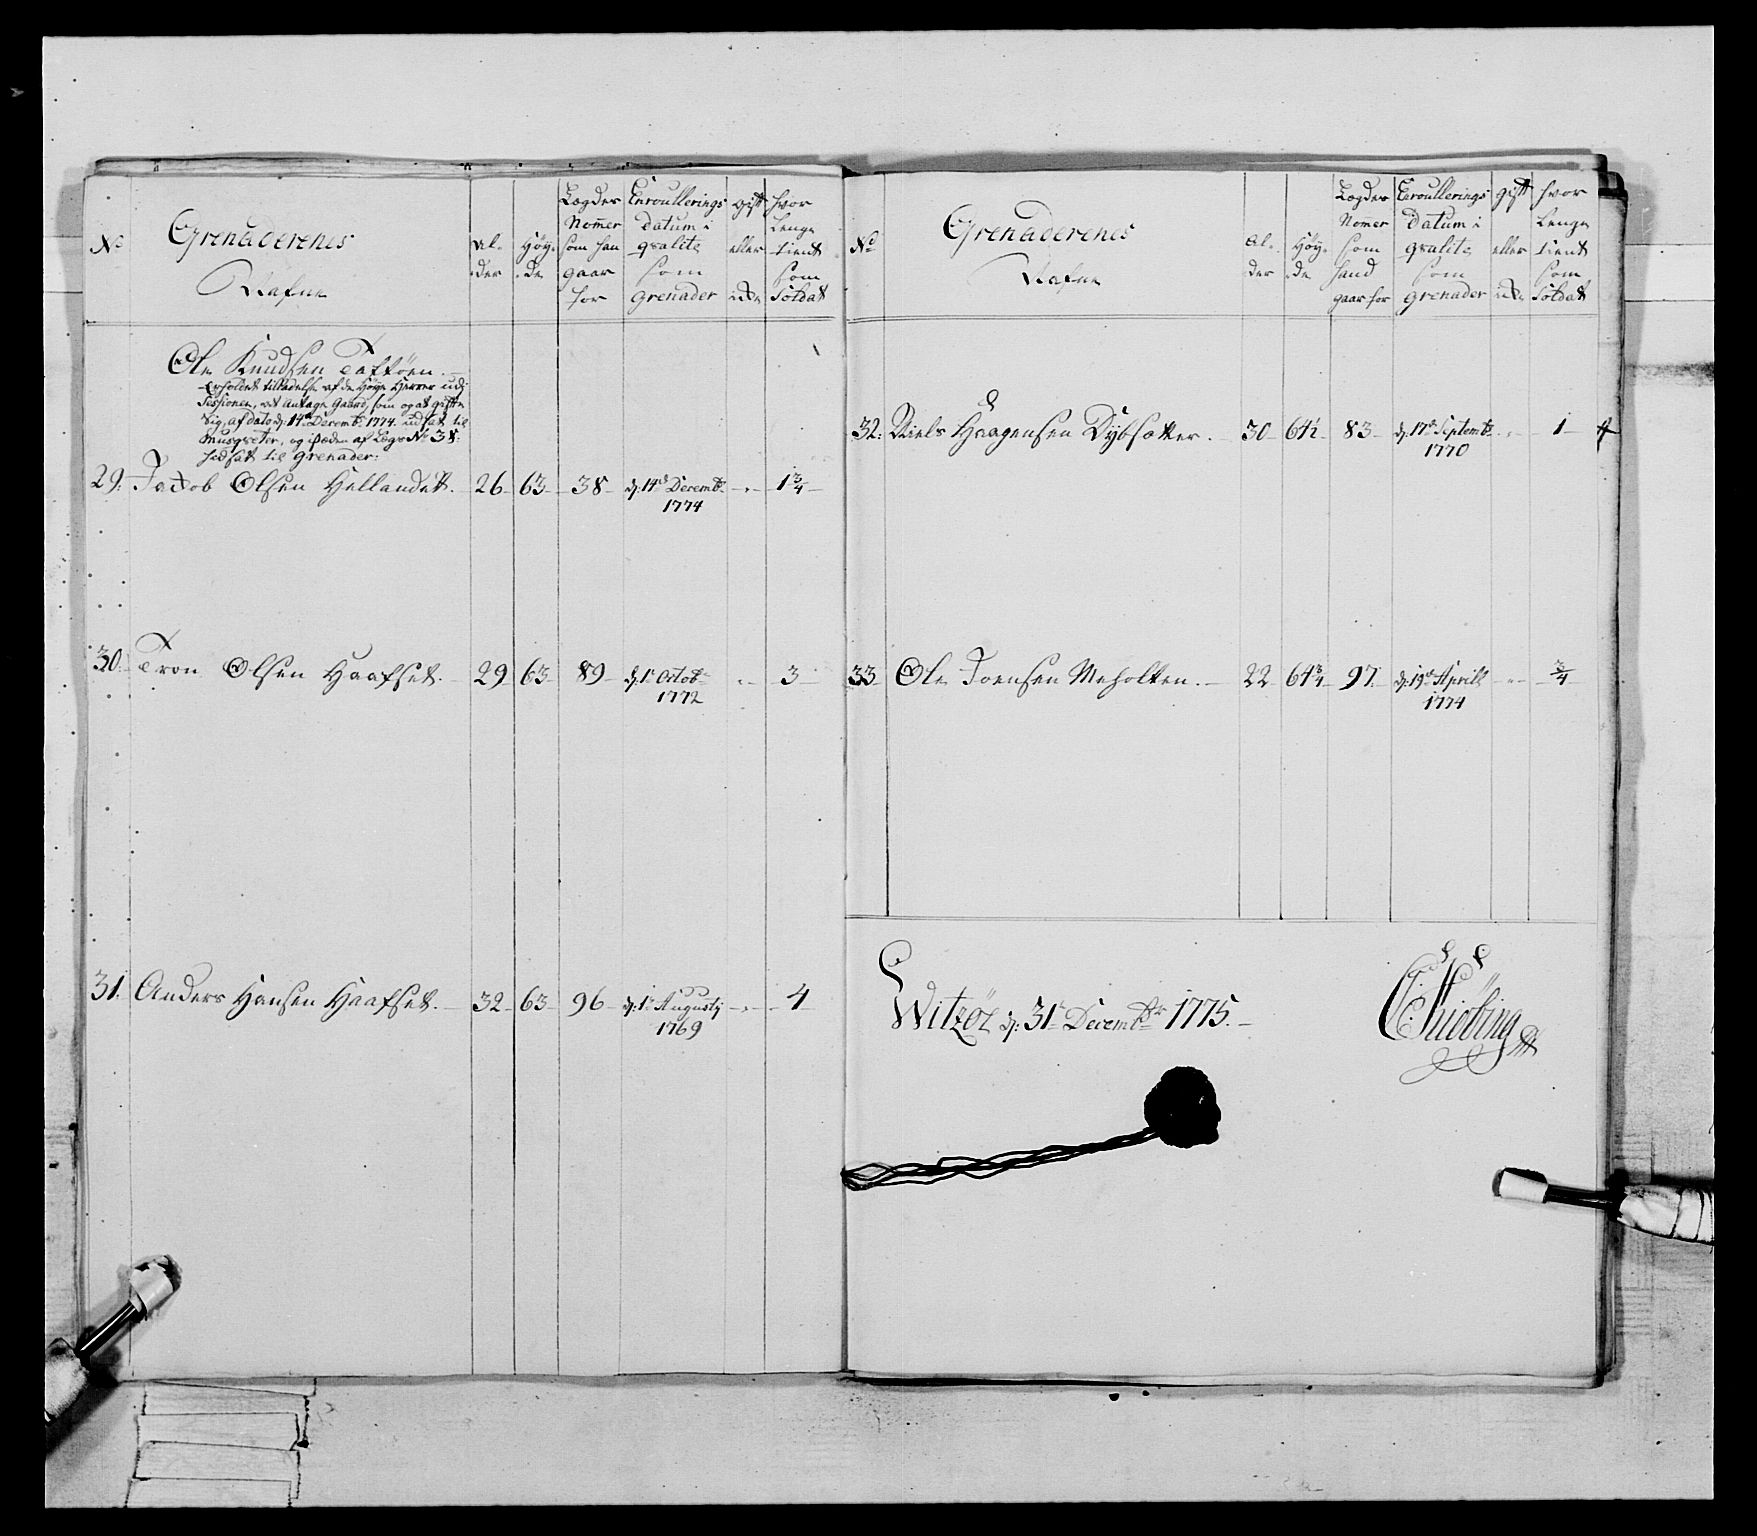 No
Grenaderenes
Nafne
Al-
der
Høy-
de
Lægdes
Nomer
som han
gaar
for
Enroullerings
Datum i
qvalite
som
Grenader
gift
eller
ikke
hvor
Lenge
tient
som
Soldat
Ole Knudsen Taftöen.
Erholdet tilladelse af de Høye Herrer udi
Sessionen, at Antage Gaard, som og at gifte
Sig, af dato d: 14de Decembr 1774. udsat til
Musqueter, og isteden af Lægd No 38.
Indsat til Grenader:
29. Jacob Olsen Hellandet. 26 63 38 d: 14de Decembr - 1 3/4
1774
30. Tron Olsen Haafset. 29 63 89 d: 1te Octobr - 3
1772
31. Anders Hansen Haafset. 32 63 96 d: 1te Augusty - 4
1769
No
Grenaderenes
Nafne
Al-
der
Høy-
de
Lægdes
Nomer
som
hand
gaar for
Enroullerings
Datum i
qvalite
som
Grenader
gift
eller
ikke
hvor
Lenge
tient
som
Soldat
32. Niels Haagensen Dybsetter. 30 64½ 83 d: 17de Septembr - 1
1770
33 Ole Joensen Meholten. 22 64 3/4 97. d: 19de Aprill - 3/4
1774
Witzöe d: 31te Decembr 1775.